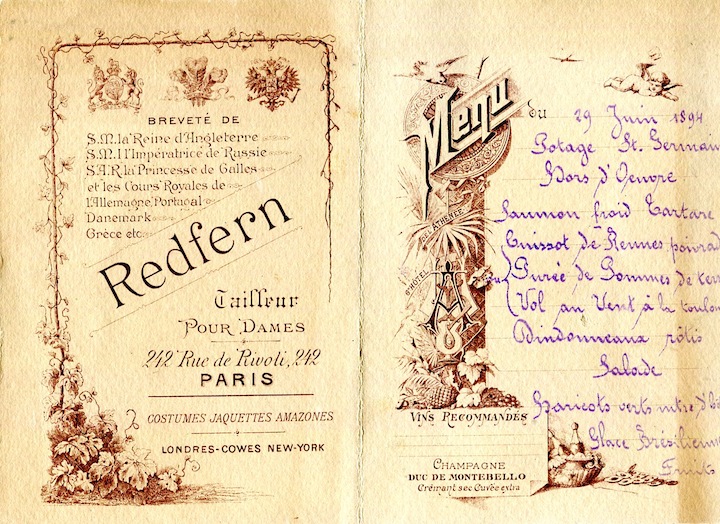 BREVETÉ DE
S.M. la Reine d'Angleterre
S.M. l'Impératrice de Russie
S.A.R. la Princesse de Galles
et les Cours Royales de
l'Allemagne, Portugal
Danemark
Grèce etc.
Redfern
Tailleur
POUR DAMES
242 Rue de Rivoli, 242
PARIS
COSTUMES JAQUETTES AMAZONES
LONDRES-COWES NEW-YORK
Menu
du 29 Juin 1894
Potage St. Germain
Hors d'Oeuvre
Saumon froid Tartare
Cuissot de Rennes poivrad
ou
Purée de Pommes de terr
Vol au Vent à la toulou
Dindonneaux rôtis
Salade
Haricots verts mtre d'hô
Glace Brésilienne
Fruits
HÔTEL
ATHÉNÉE
VINS RECOMMANDÉS
CHAMPAGNE
DUC DE MONTEBELLO
Crémant sec Cuvée extra